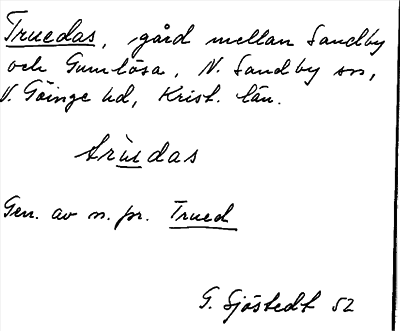 Truedas, gård mellan Sandby
och Gumlösa, N. Sandby sn,
V. Göinge hd, Krist. län.
trùedas
Gen. av n. pr. Trued
G. Sjöstedt 52